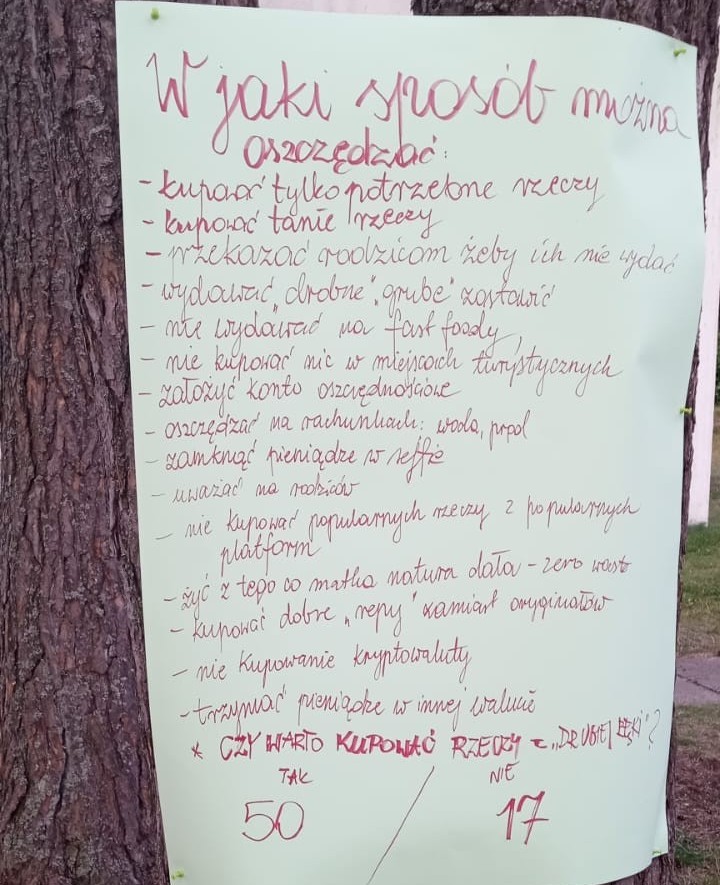 W jaki sposób można
oszczędzać:
- kupować tylko potrzebne rzeczy
- kupować tanie rzeczy
- przekazać rodzicom żeby ich nie wydać
- wydawać „drobne", „grube" zostawić
- nie wydawać na fast foody
- nie kupować nic w miejscach turystycznych
- założyć konto oszczędnościowe
- oszczędzać na rachunkach: woda, prąd
- zamknąć pieniądze w sejfie
- uważać na rodziców
- nie kupować popularnych rzeczy z popularnych
platform
- żyć z tego co matka natura dała - zero waste
- kupować dobre „repy" zamiast oryginałów
- nie kupowanie kryptowaluty
- trzymać pieniądze w innej walucie
* CZY WARTO KUPOWAĆ RZECZY z „DRUGIEJ RĘKI"?
TAK / NIE
50 17